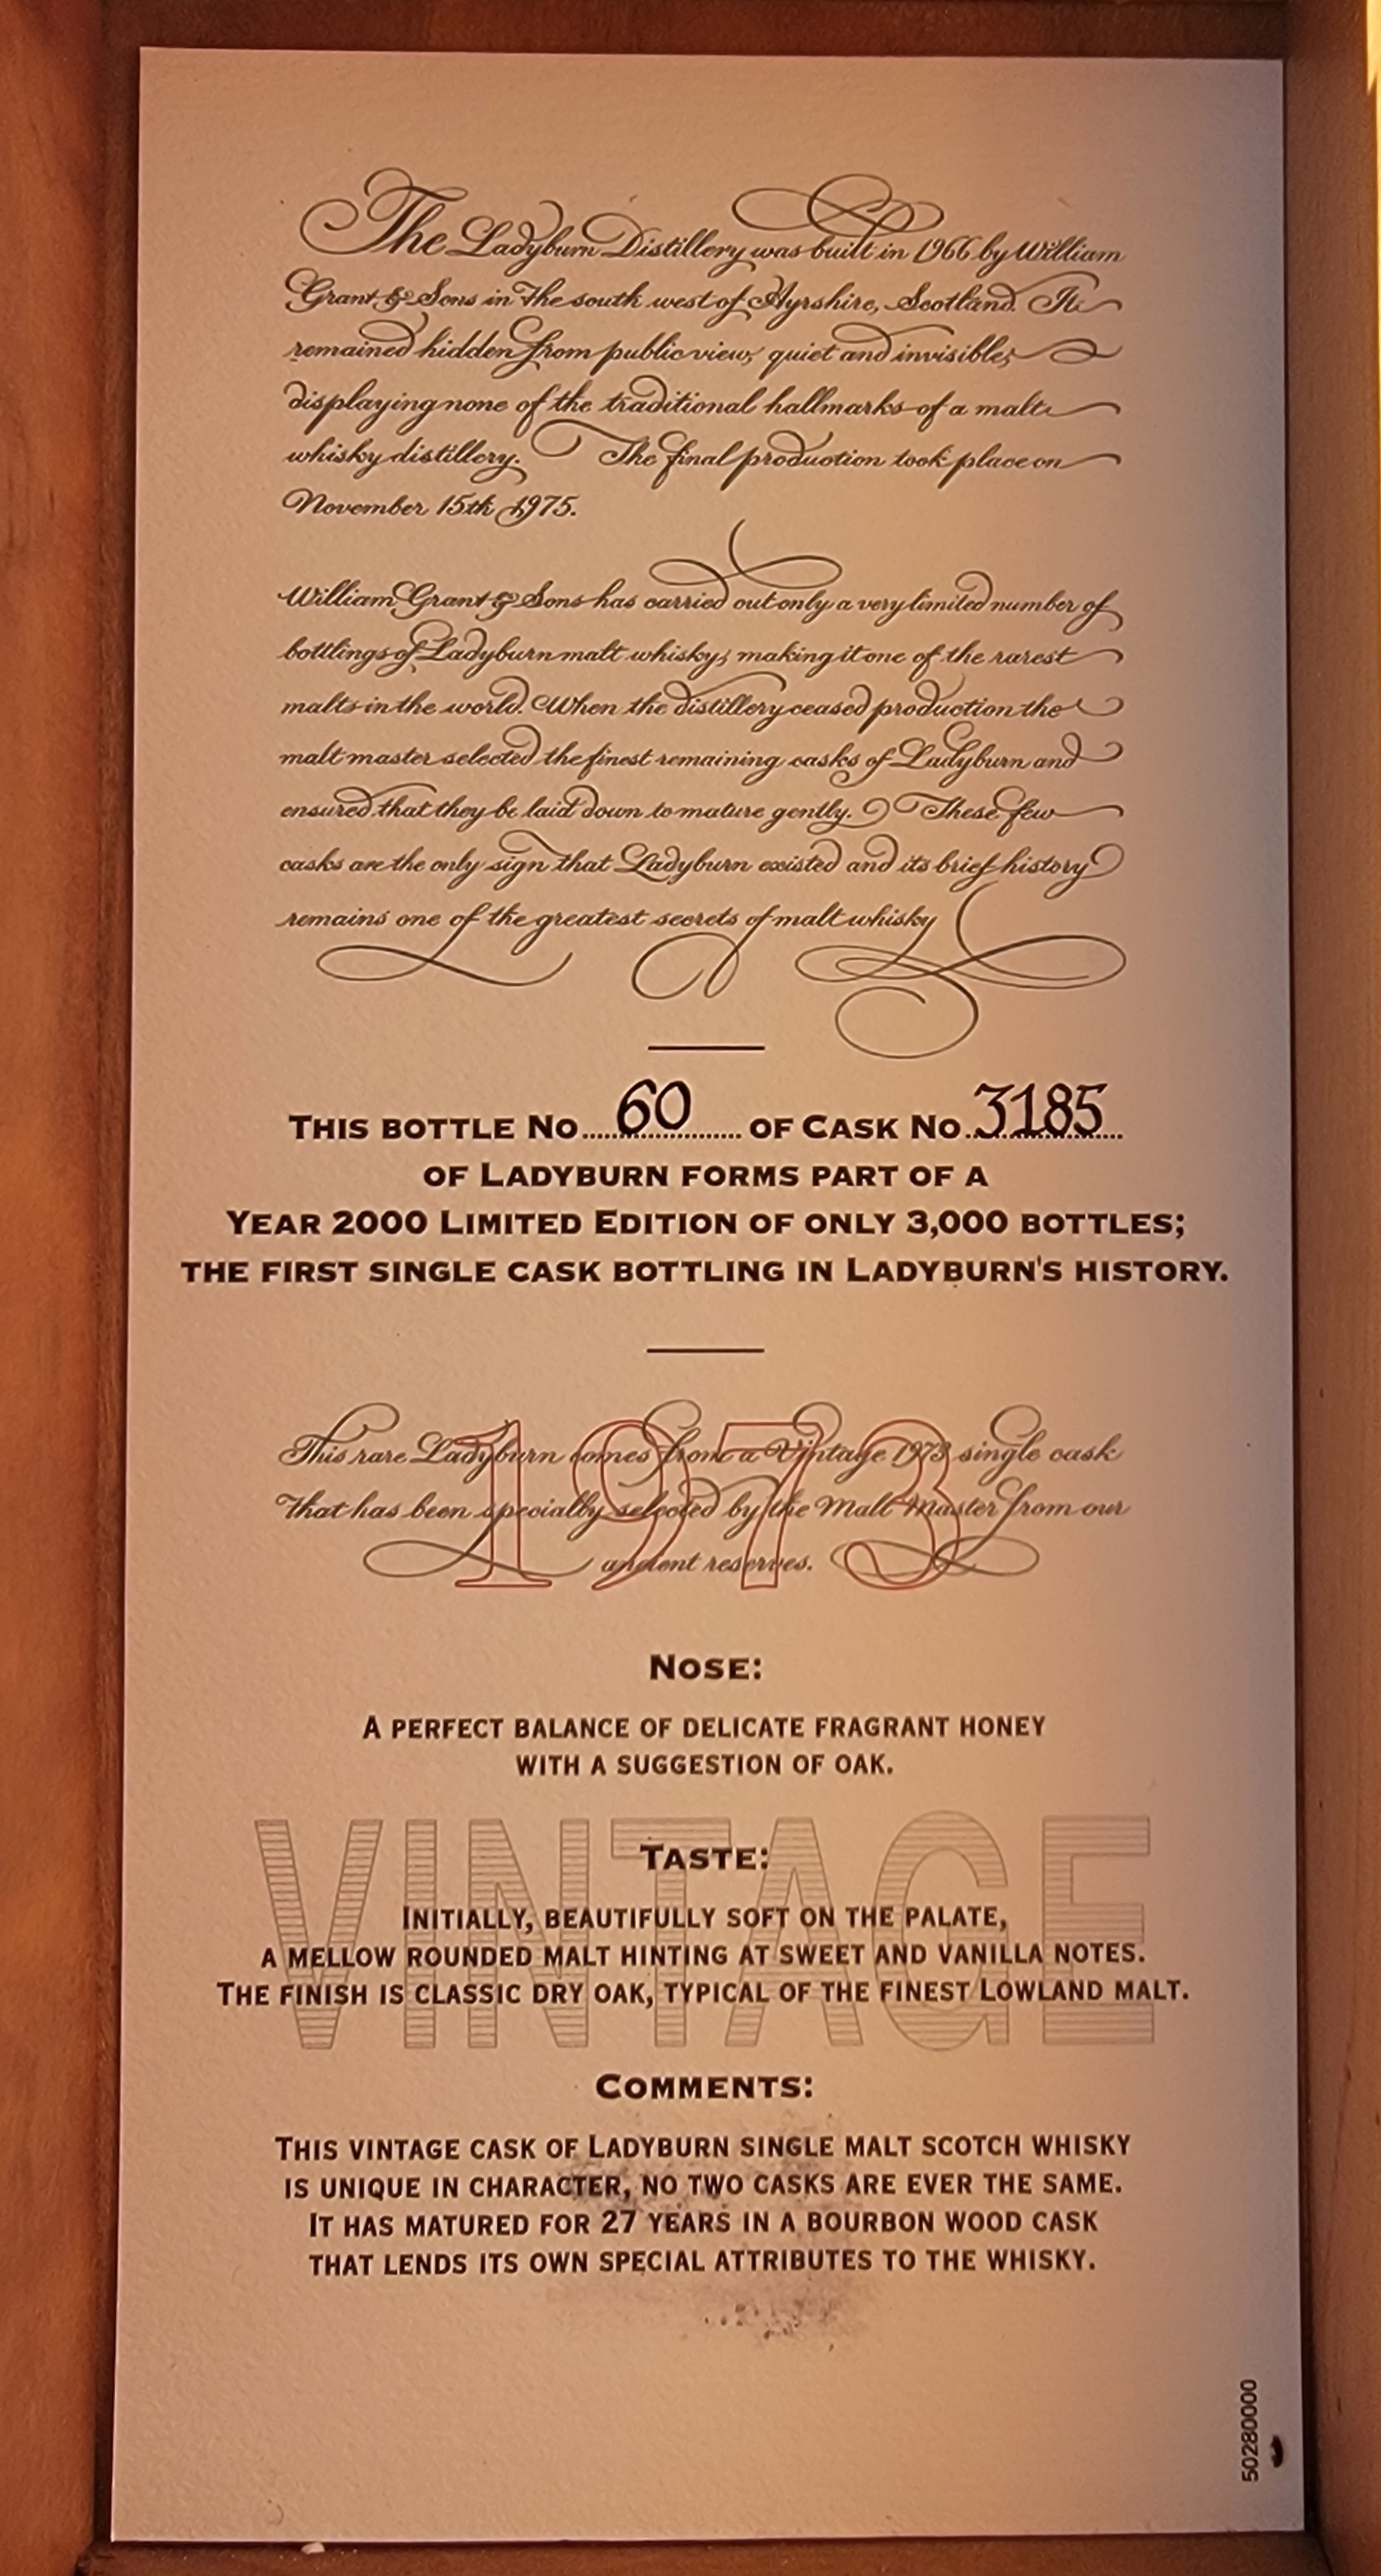 The Ladyburn Distillery was built in 1966 by William
Grant & Sons in the south west of Ayrshire, Scotland. It
remained hidden from public view, quiet and invisible,
displaying none of the traditional hallmarks of a malt
whisky distillery. The final production took place on
November 15th 1975.
William Grant & Sons has carried out only a very limited number of
bottlings of Ladyburn malt whisky, making it one of the rarest
malts in the world. When the distillery ceased production the
malt master selected the finest remaining casks of Ladyburn and
ensured that they be laid down to mature gently. These few
casks are the only sign that Ladyburn existed and its brief history
remains one of the greatest secrets of malt whisky
THIS BOTTLE NO 60 OF CASK NO 3185
OF LADYBURN FORMS PART OF A
YEAR 2000 LIMITED EDITION OF ONLY 3,000 BOTTLES;
THE FIRST SINGLE CASK BOTTLING IN LADYBURN'S HISTORY.
1973
This rare Ladyburn comes from a Vintage 1973 single cask
that has been specially selected by the Malt Master from our
ancient reserves.
NOSE:
A PERFECT BALANCE OF DELICATE FRAGRANT HONEY
WITH A SUGGESTION OF OAK.
VINTAGE
TASTE:
INITIALLY, BEAUTIFULLY SOFT ON THE PALATE,
A MELLOW ROUNDED MALT HINTING AT SWEET AND VANILLA NOTES.
THE FINISH IS CLASSIC DRY OAK, TYPICAL OF THE FINEST LOWLAND MALT.
COMMENTS:
THIS VINTAGE CASK OF LADYBURN SINGLE MALT SCOTCH WHISKY
IS UNIQUE IN CHARACTER, NO TWO CASKS ARE EVER THE SAME.
IT HAS MATURED FOR 27 YEARS IN A BOURBON WOOD CASK
THAT LENDS ITS OWN SPECIAL ATTRIBUTES TO THE WHISKY.
50280000